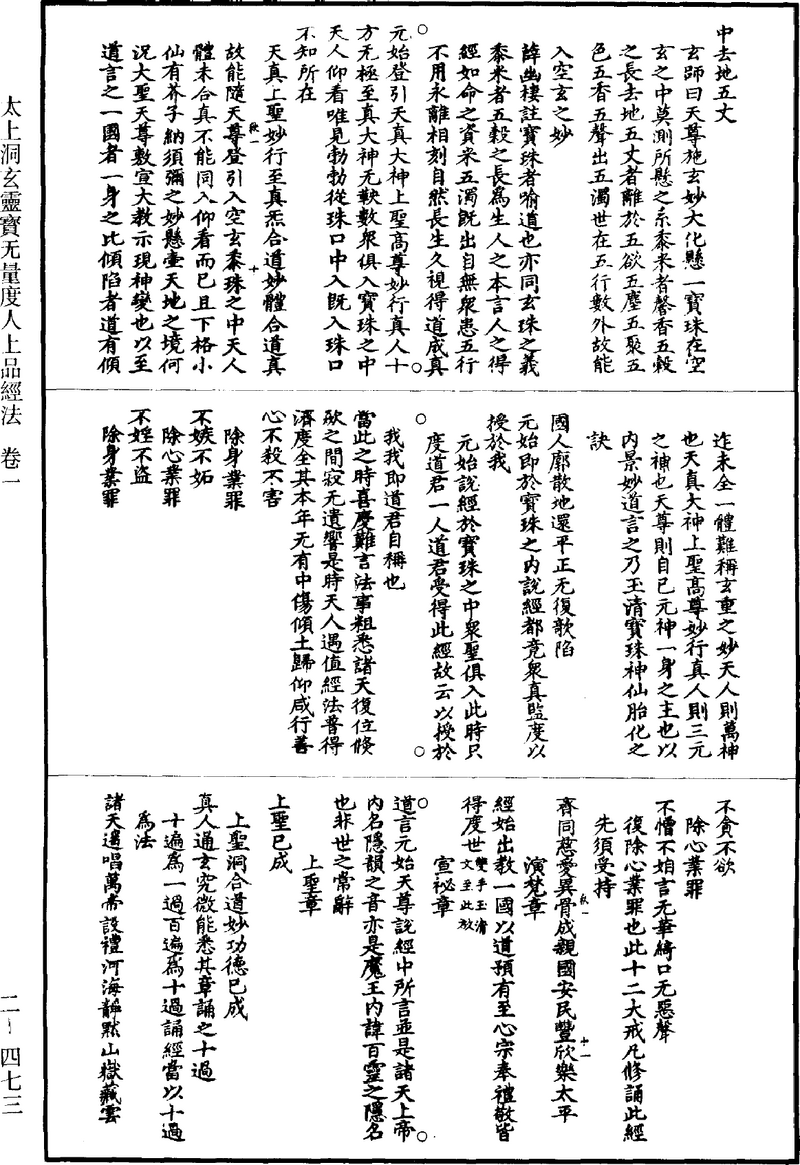 中去地五丈
玄師曰天尊施玄妙大化懸一寶珠在空
玄之中莫測所懸之系黍米者馨香五穀
之長去地五丈者離於五欲五塵五聚五
色五香五聲出五濁世在五行數外故能
入空玄之妙
薛幽棲註寶珠者喻道也亦同玄珠之義
黍米者五穀之長為生人之本言人之得
經如命之資米五濁既出自無衆患五行
不用永離相刻自然長生久視得道成真
○元始登引天真大神上聖高尊妙行真人十
方无極至真大神无鞅數衆俱入寶珠之中
天人仰看唯見勃勃從珠口中入既入珠口
不知所在○
天真上聖妙行至真炁合道妙體合道真
故能隨天尊登引入空玄黍珠之中天人
體未合真不能同入仰看而已且下格小
仙有芥子納須彌之妙懸壺天地之境何
況大聖天尊敷宣大教示現神變也以至
道言之一國者一身之比傾陷者道有傾
迮未全一體難稱玄重之妙天人則萬神
也天真大神上聖高尊妙行真人則三元
之神也天尊則自己元神一身之主也以
內景妙道言之乃玉清寶珠神仙胎化之
訣
國人廓散地還平正无復欹陷
元始即於寶珠之內說經都竟衆真監度以
授於我
元始說經於寶珠之中衆聖俱入此時只
度道君一人道君受得此經故云以授於
我我即道君自稱也
○當此之時喜慶難言法事粗悉諸天復位倏
歘之間寂无遺響是時天人遇值經法普得
濟度全其本年无有中傷傾土歸仰咸行善
心不殺不害○
除身業罪
不嫉不妬
除心業罪
不婬不盜
除身業罪
不貪不欲
除心業罪
不憎不㛿言无華綺口无惡聲
復除心業罪也此十二大戒凡修誦此經
先須受持
齊同慈愛異骨成親國安民豐欣樂太平
演梵章
經始出教一國以道預有至心宗奉禮敬皆
得度世變乎玉清文至此放
宣祕章
○道言元始天尊說經中所言並是諸天上帝
內名隱韻之音亦是魔王內諱百靈之隱名
也非世之常辭○
上聖章
上聖已成
上聖洞合道妙功德已成
真人通玄究微能悉其章誦之十過
十遍為一過百遍為十過誦經當以十過
為法
諸天遥唱萬帝設禮河海靜默山嶽藏雲
太上洞玄靈寶无量度人上品經法 卷一
二－四七三